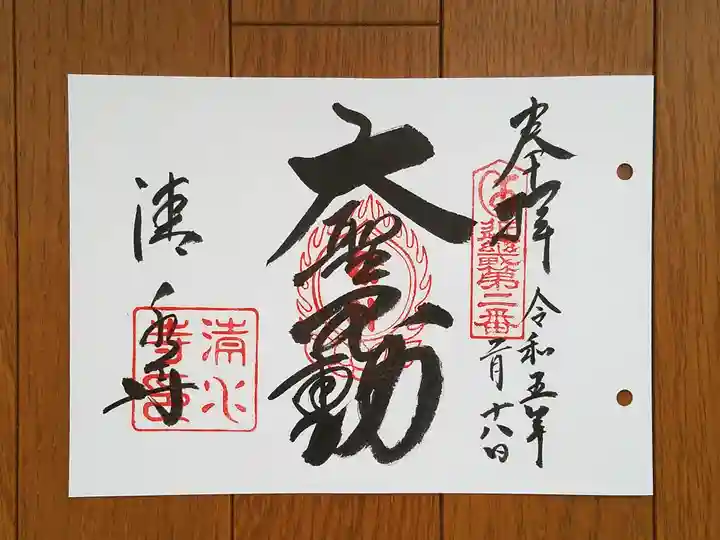 奉拝
令和五年
二月十八日
第二番
大聖不動
清水寺
清水寺印